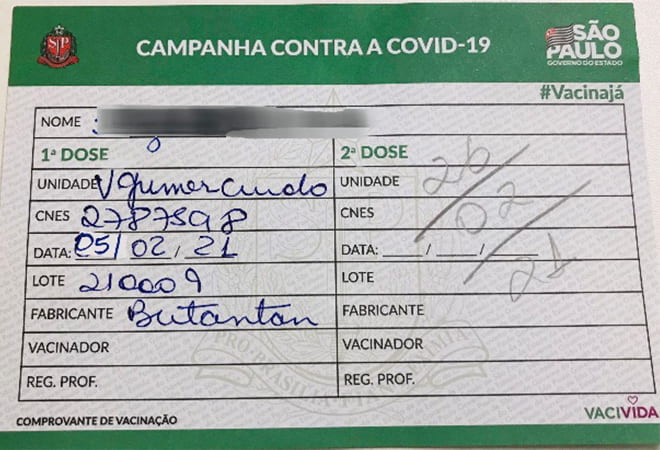 CAMPANHA CONTRA A COVID-19
SÃO PAULO
GOVERNO DO ESTADO
#Vacinajá
NOME
1ª DOSE
UNIDADE V Gumercindo
CNES 2787598
DATA: 05/02/21
LOTE 210009
FABRICANTE Butantan
VACINADOR
REG. PROF.
2ª DOSE
UNIDADE
CNES
DATA: ____/____/____
26/02/21
LOTE
FABRICANTE
VACINADOR
REG. PROF.
COMPROVANTE DE VACINAÇÃO
VACIVIDA